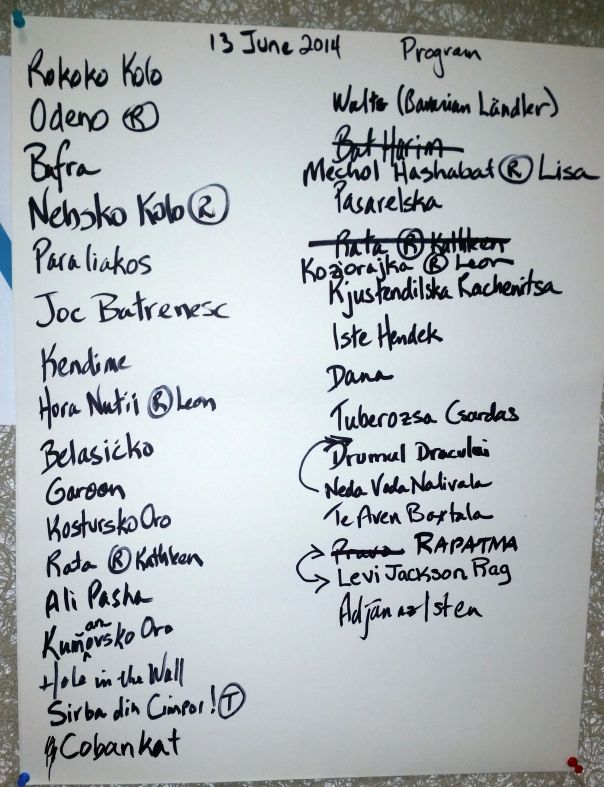 13 June 2014 Program
Rokoko Kolo
Odeno Ⓡ
Bafra
Nebosko Kolo Ⓡ
Paraliakos
Joc Batrenesc
Kendime
Hora Nutii Ⓡ Leon
Belasičko
Garoon
Kostursko Oro
Rata Ⓡ Kathleen
Ali Pasha
Kumanovsko Oro
Hole in the Wall
Sirba din Cimpoi! Ⓣ
Cobankat
Waltz (Bavarian Ländler)
Bat Harim
Mechol Hashabat Ⓡ Lisa
Pasarelska
Rata Ⓡ Kathleen
Kozjorajka Ⓡ Leon
Kjustendilska Rachenitsa
Iste Hendek
Dana
Tuberozsa Csardas
Drumul Dracului
Neda Voda Nalivala
Te Aven Baxtala
Prava RAPATMA
Levi Jackson Rag
Adjon az Isten